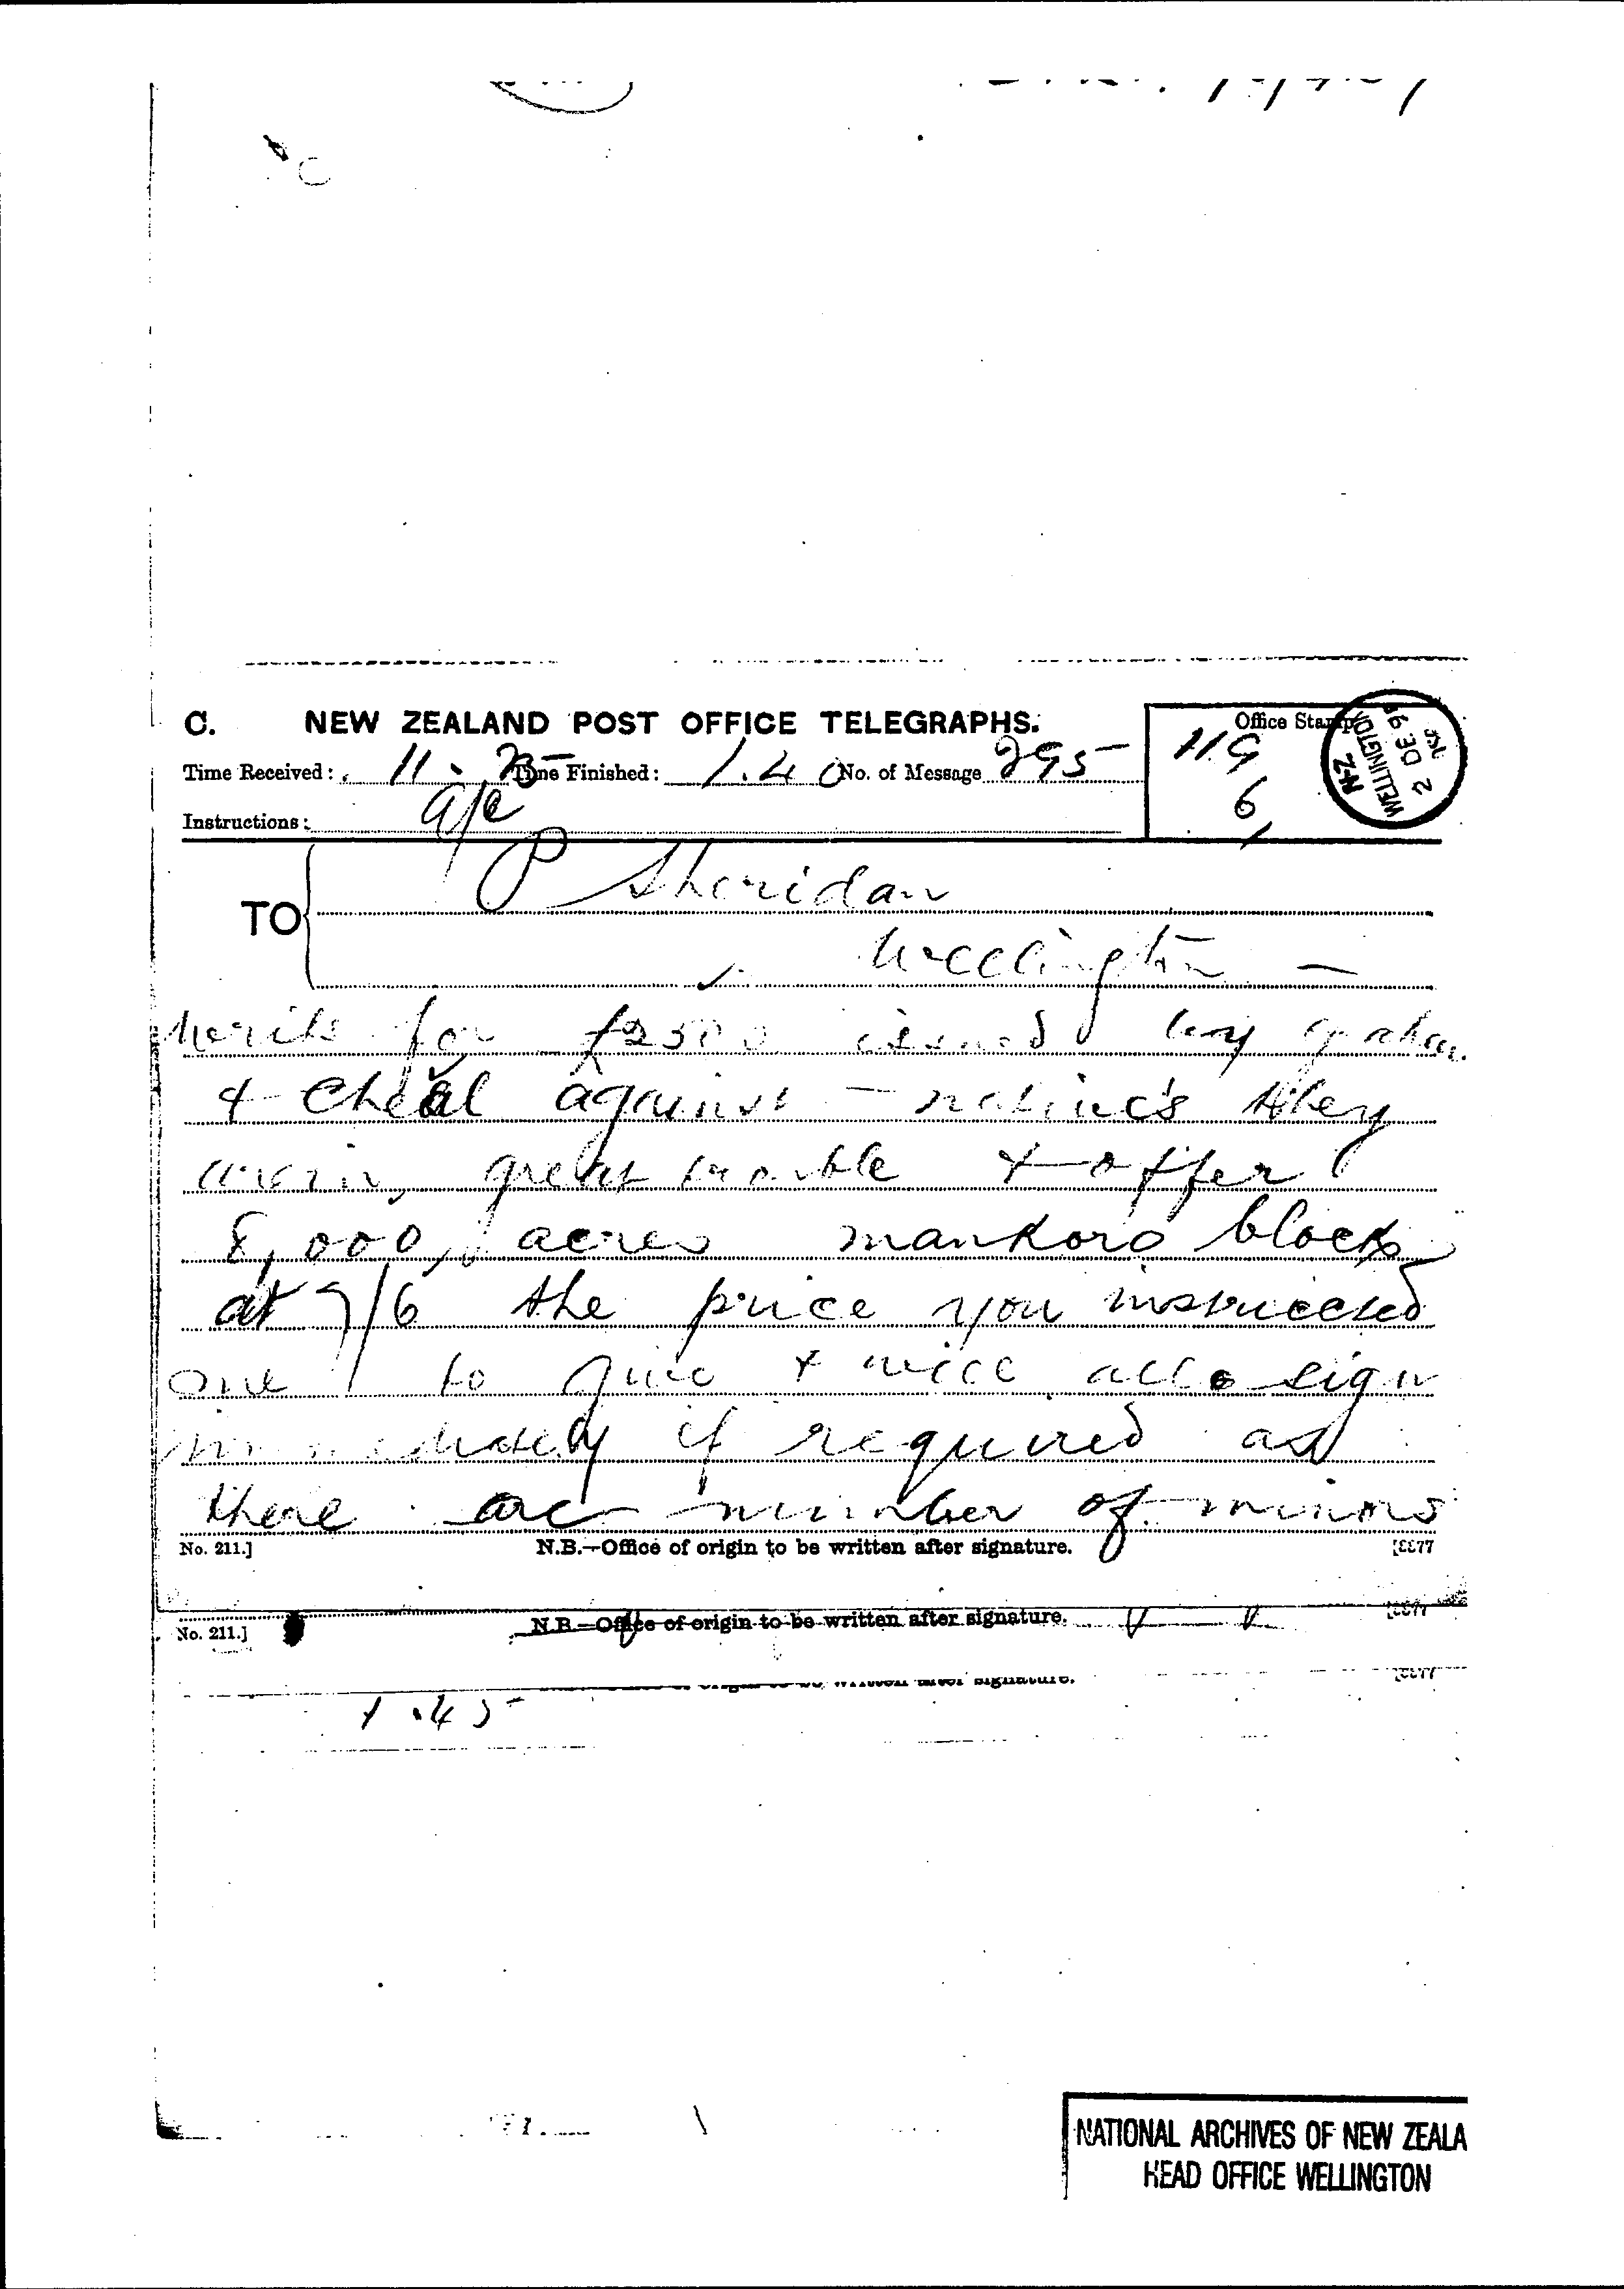 C. NEW ZEALAND POST OFFICE TELEGRAPHS.
Office Stamp
Time Received: 11. Time Finished: 1.40 No. of Message 295
H.G
6
WELLINGTON N-Z 2 DE
Instructions:
TO P Sheridan
Wellington —
Writs for £2500 issued by Graham
& Cheal against natives they
are in great trouble & offer
8,000, acres mankoro block
at 7/6 the price you instructed
me to give & will also sign
immediately if required as
there are number of minors
No. 211.] N.B.—Office of origin to be written after signature. [8877
No. 211.] N.B.—Office of origin to be written after signature. [8877
signature. [8877
1.45
NATIONAL ARCHIVES OF NEW ZEALA
HEAD OFFICE WELLINGTON